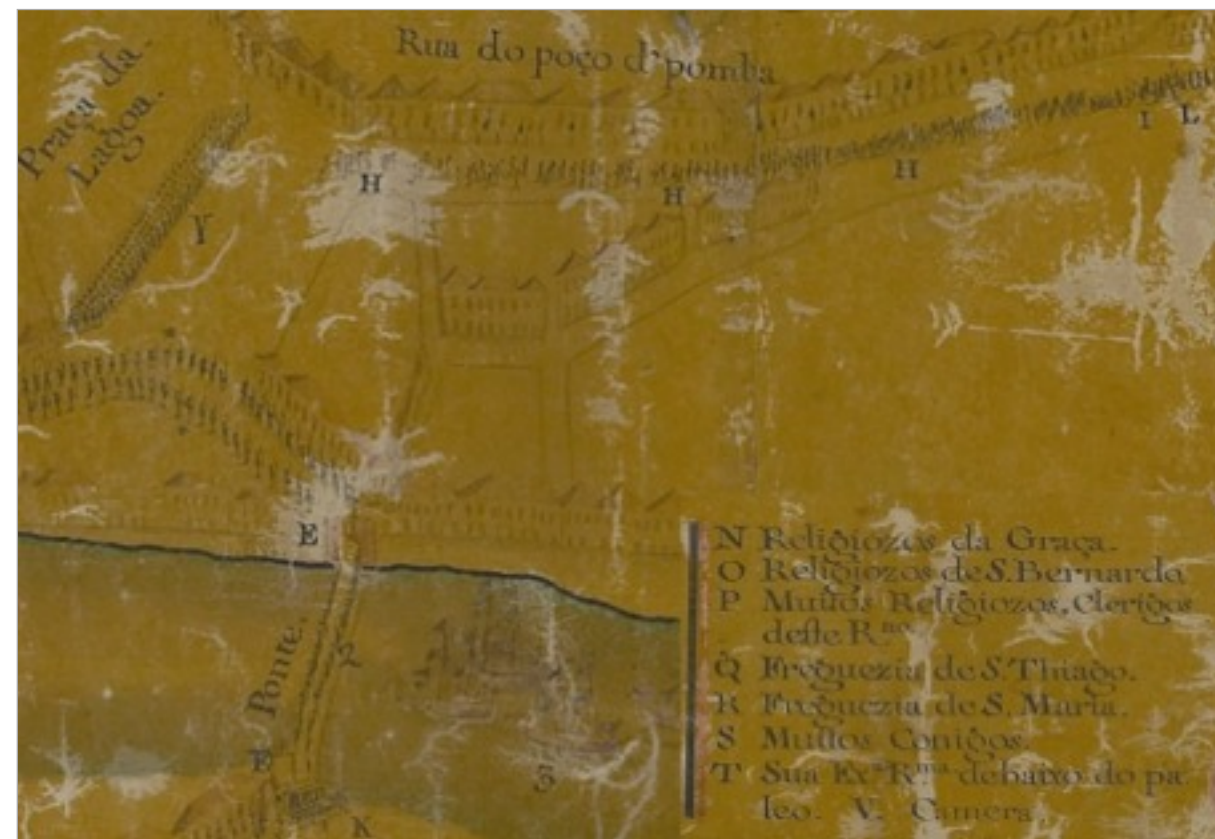 Rua do poço d'pomba
Praça da
Lagoa.
I L
H H H
Y
E
N Religiozos da Graça.
O Religiozos de S. Bernardo
P Muitos Religiozos, Clerigos
deste R.no
Ponte.
2
Q Freguezia de S. Thiago.
R Freguezia de S. Maria.
E
S Muitos Conigos.
3
T Sua Ex.a R.ma debaixo do pa
leo. V. Camera,
K